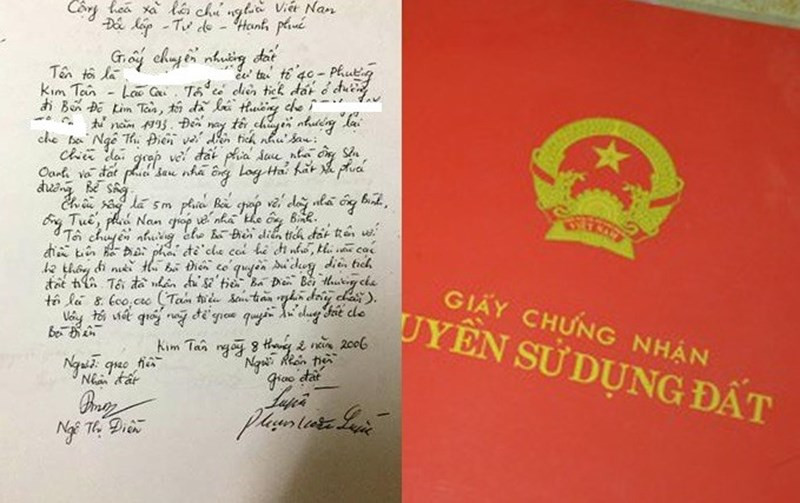 Cộng hoà xã hội chủ nghĩa Việt Nam
Độc lập - Tự do - Hạnh phúc
Giấy chuyển nhượng đất
Tên tôi là cư trú tổ 40 - Phường
Kim Tân - Lào Cai. Tôi có diện tích đất ở đường
đi Bến Đò Kim Tân, tôi đã bồi thường cho
từ năm 1993. Đến nay tôi chuyển nhượng lại
cho Bà Ngô Thị Điền với diện tích như sau:
Chiều dài giáp với đất phía sau nhà ông Sơn
Oanh và đất phía sau nhà ông Long Hải hắt ra phía
đường Bờ Sông.
Chiều rộng là 5m phía Bắc giáp với dãy nhà ông Bình,
ông Tuế, phía Nam giáp với nhà kho ông Bình.
Tôi chuyển nhượng cho Bà Điền diện tích đất trên với
điều kiện Bà Điền phải để cho các hộ đi nhờ, khi nào các
hộ không đi nữa thì Bà Điền có quyền sử dụng diện tích
đất trên. Tôi đã nhận đủ số tiền Bà Điền Bồi thường cho
tôi là 8.600.000 (Tám triệu sáu trăm nghìn đồng chẵn).
Vậy tôi viết giấy này để giao quyền sử dụng đất cho
Bà Điền
Kim Tân ngày 8 tháng 2 năm 2006
Người giao tiền Người nhận tiền
Nhận đất Giao đất
Ngô Thị Điền
VIỆT NAM
GIẤY CHỨNG NHẬN
UYỀN SỬ DỤNG ĐẤT